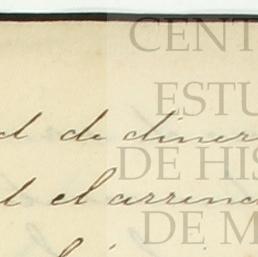 CENT
ESTU
d de diner
DE HIS
d el arrend
DE M